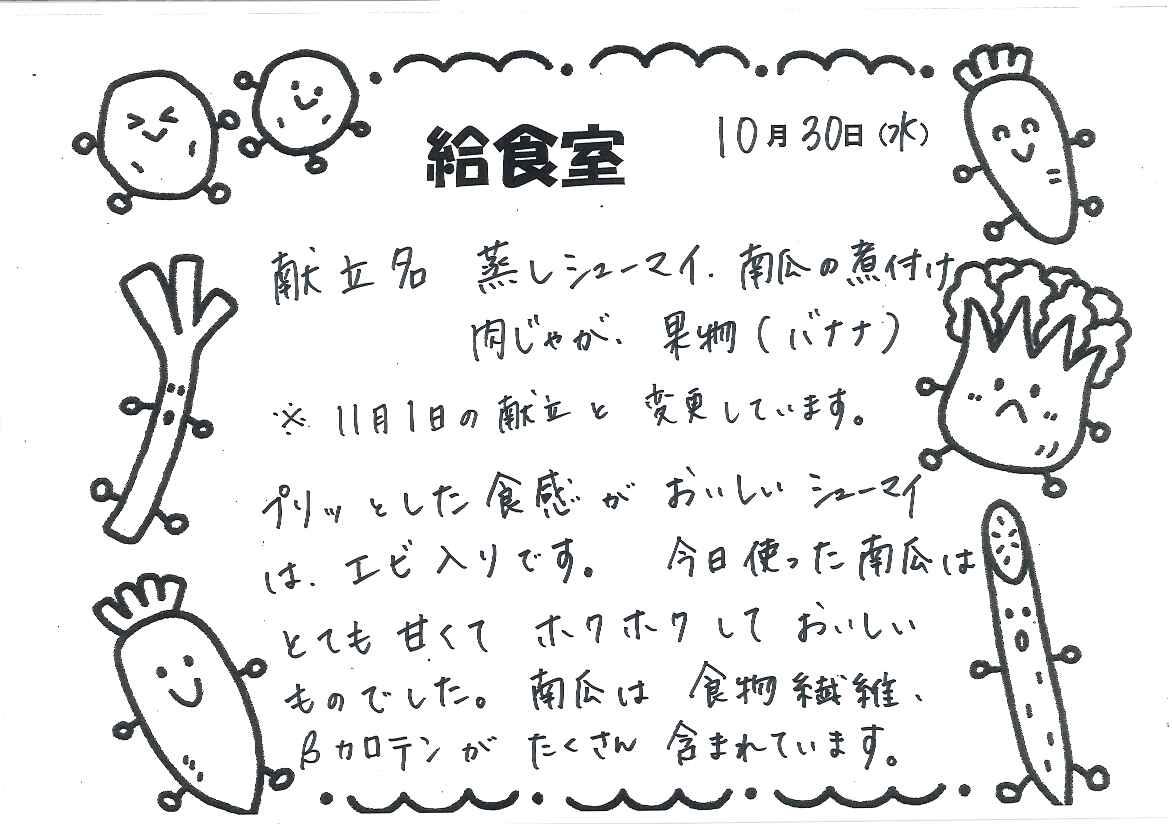 給食室
10月30日(水)
献立名 蒸しシューマイ、南瓜の煮付け
肉じゃが、果物(バナナ)
※ 11月1日の献立と変更しています。
プリッとした食感がおいしいシューマイ
は、エビ入りです。今日使った南瓜は
とても甘くてホクホクしておいしい
ものでした。南瓜は食物繊維、
βカロテンがたくさん含まれています。